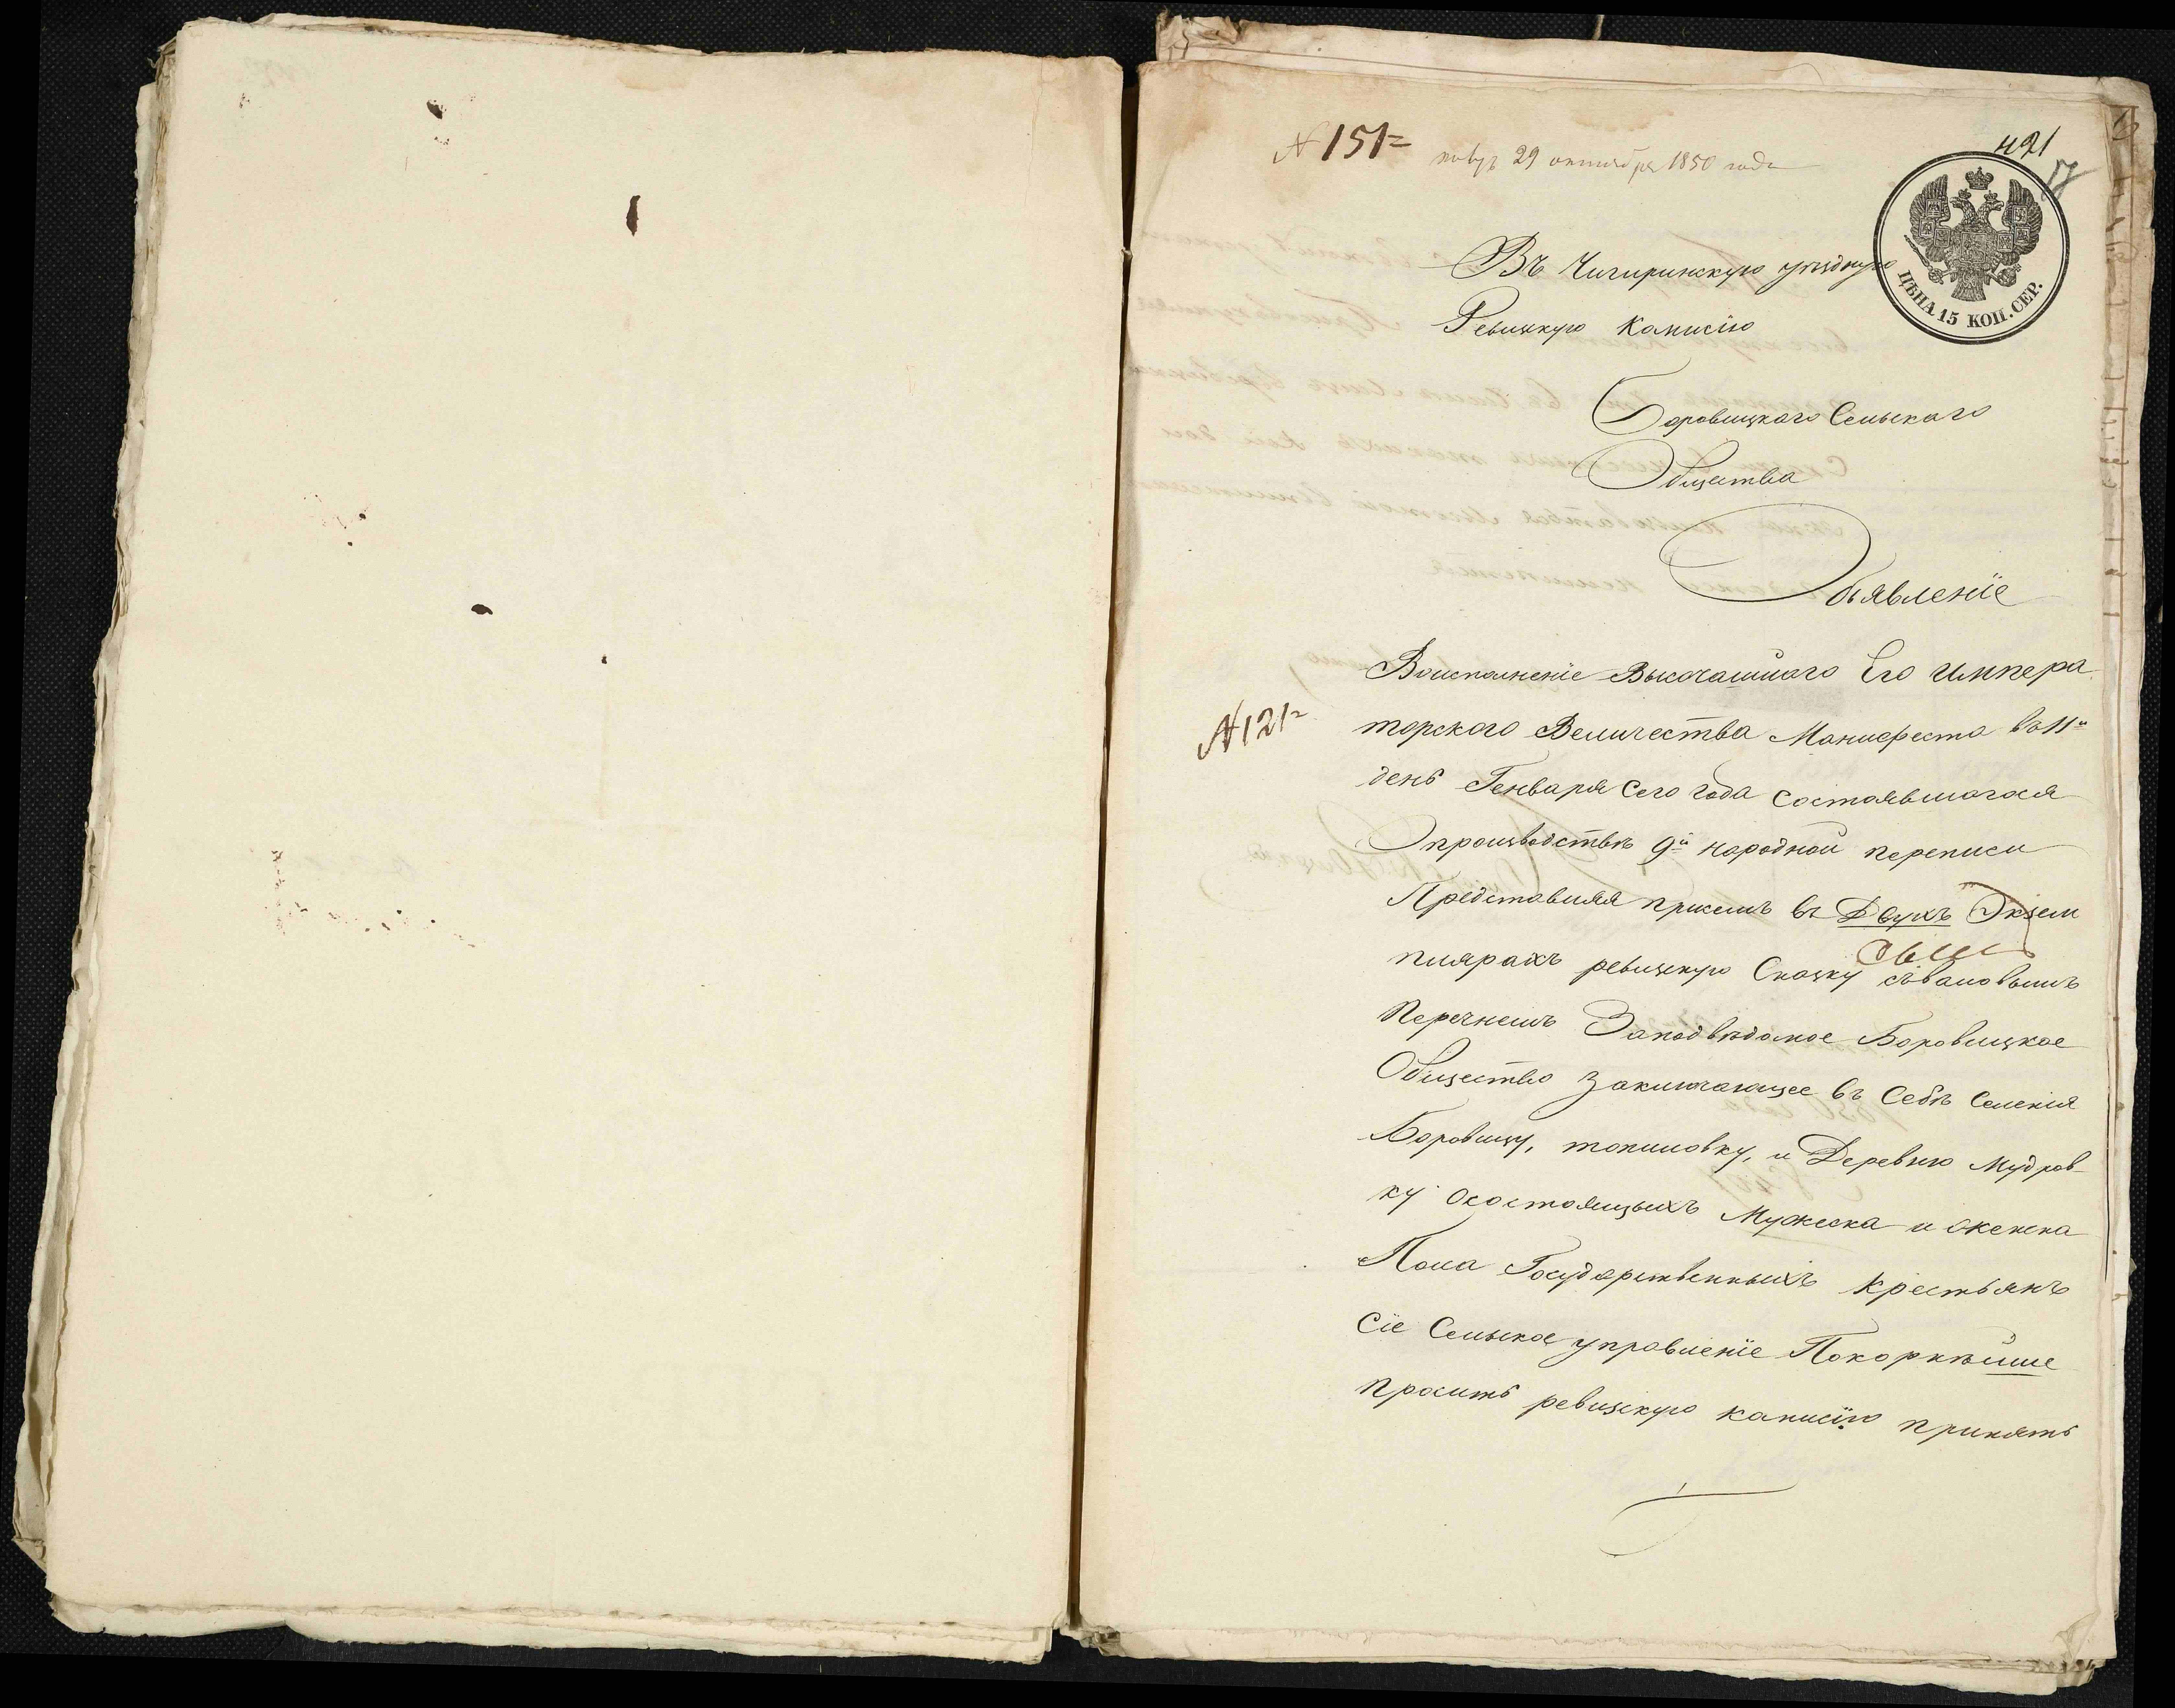 № 151
29 октября 1850 года
421
ЦѢНА 15 КОП. СЕР.
Въ Чигиринскую уѣздную
Ревизкую Камисію
Боровицкаго Сельскаго
Общества
Объявленіе
Воисполненіе Высочайшаго Его Импера
торскаго Величества Манифеста въ 11й
№ 121
день Генваря Сего года Состоявшагося
Опроизводствѣ 9й народной переписи
Представляя присемъ въ Двухъ Экзем
плярахъ ревизкую Сказку
Перечнемъ Заподвѣдомое Боровицкое
Общество Заключающее въ Себѣ Селенія
Боровицу, топиловку, и Деревню Мудров-
ку осостоящыхъ Мужеска и женска
Пола Государственныхъ крестьянъ
Сіе Сельское управленіе Покорнѣйше
проситъ ревизскую камисію принять